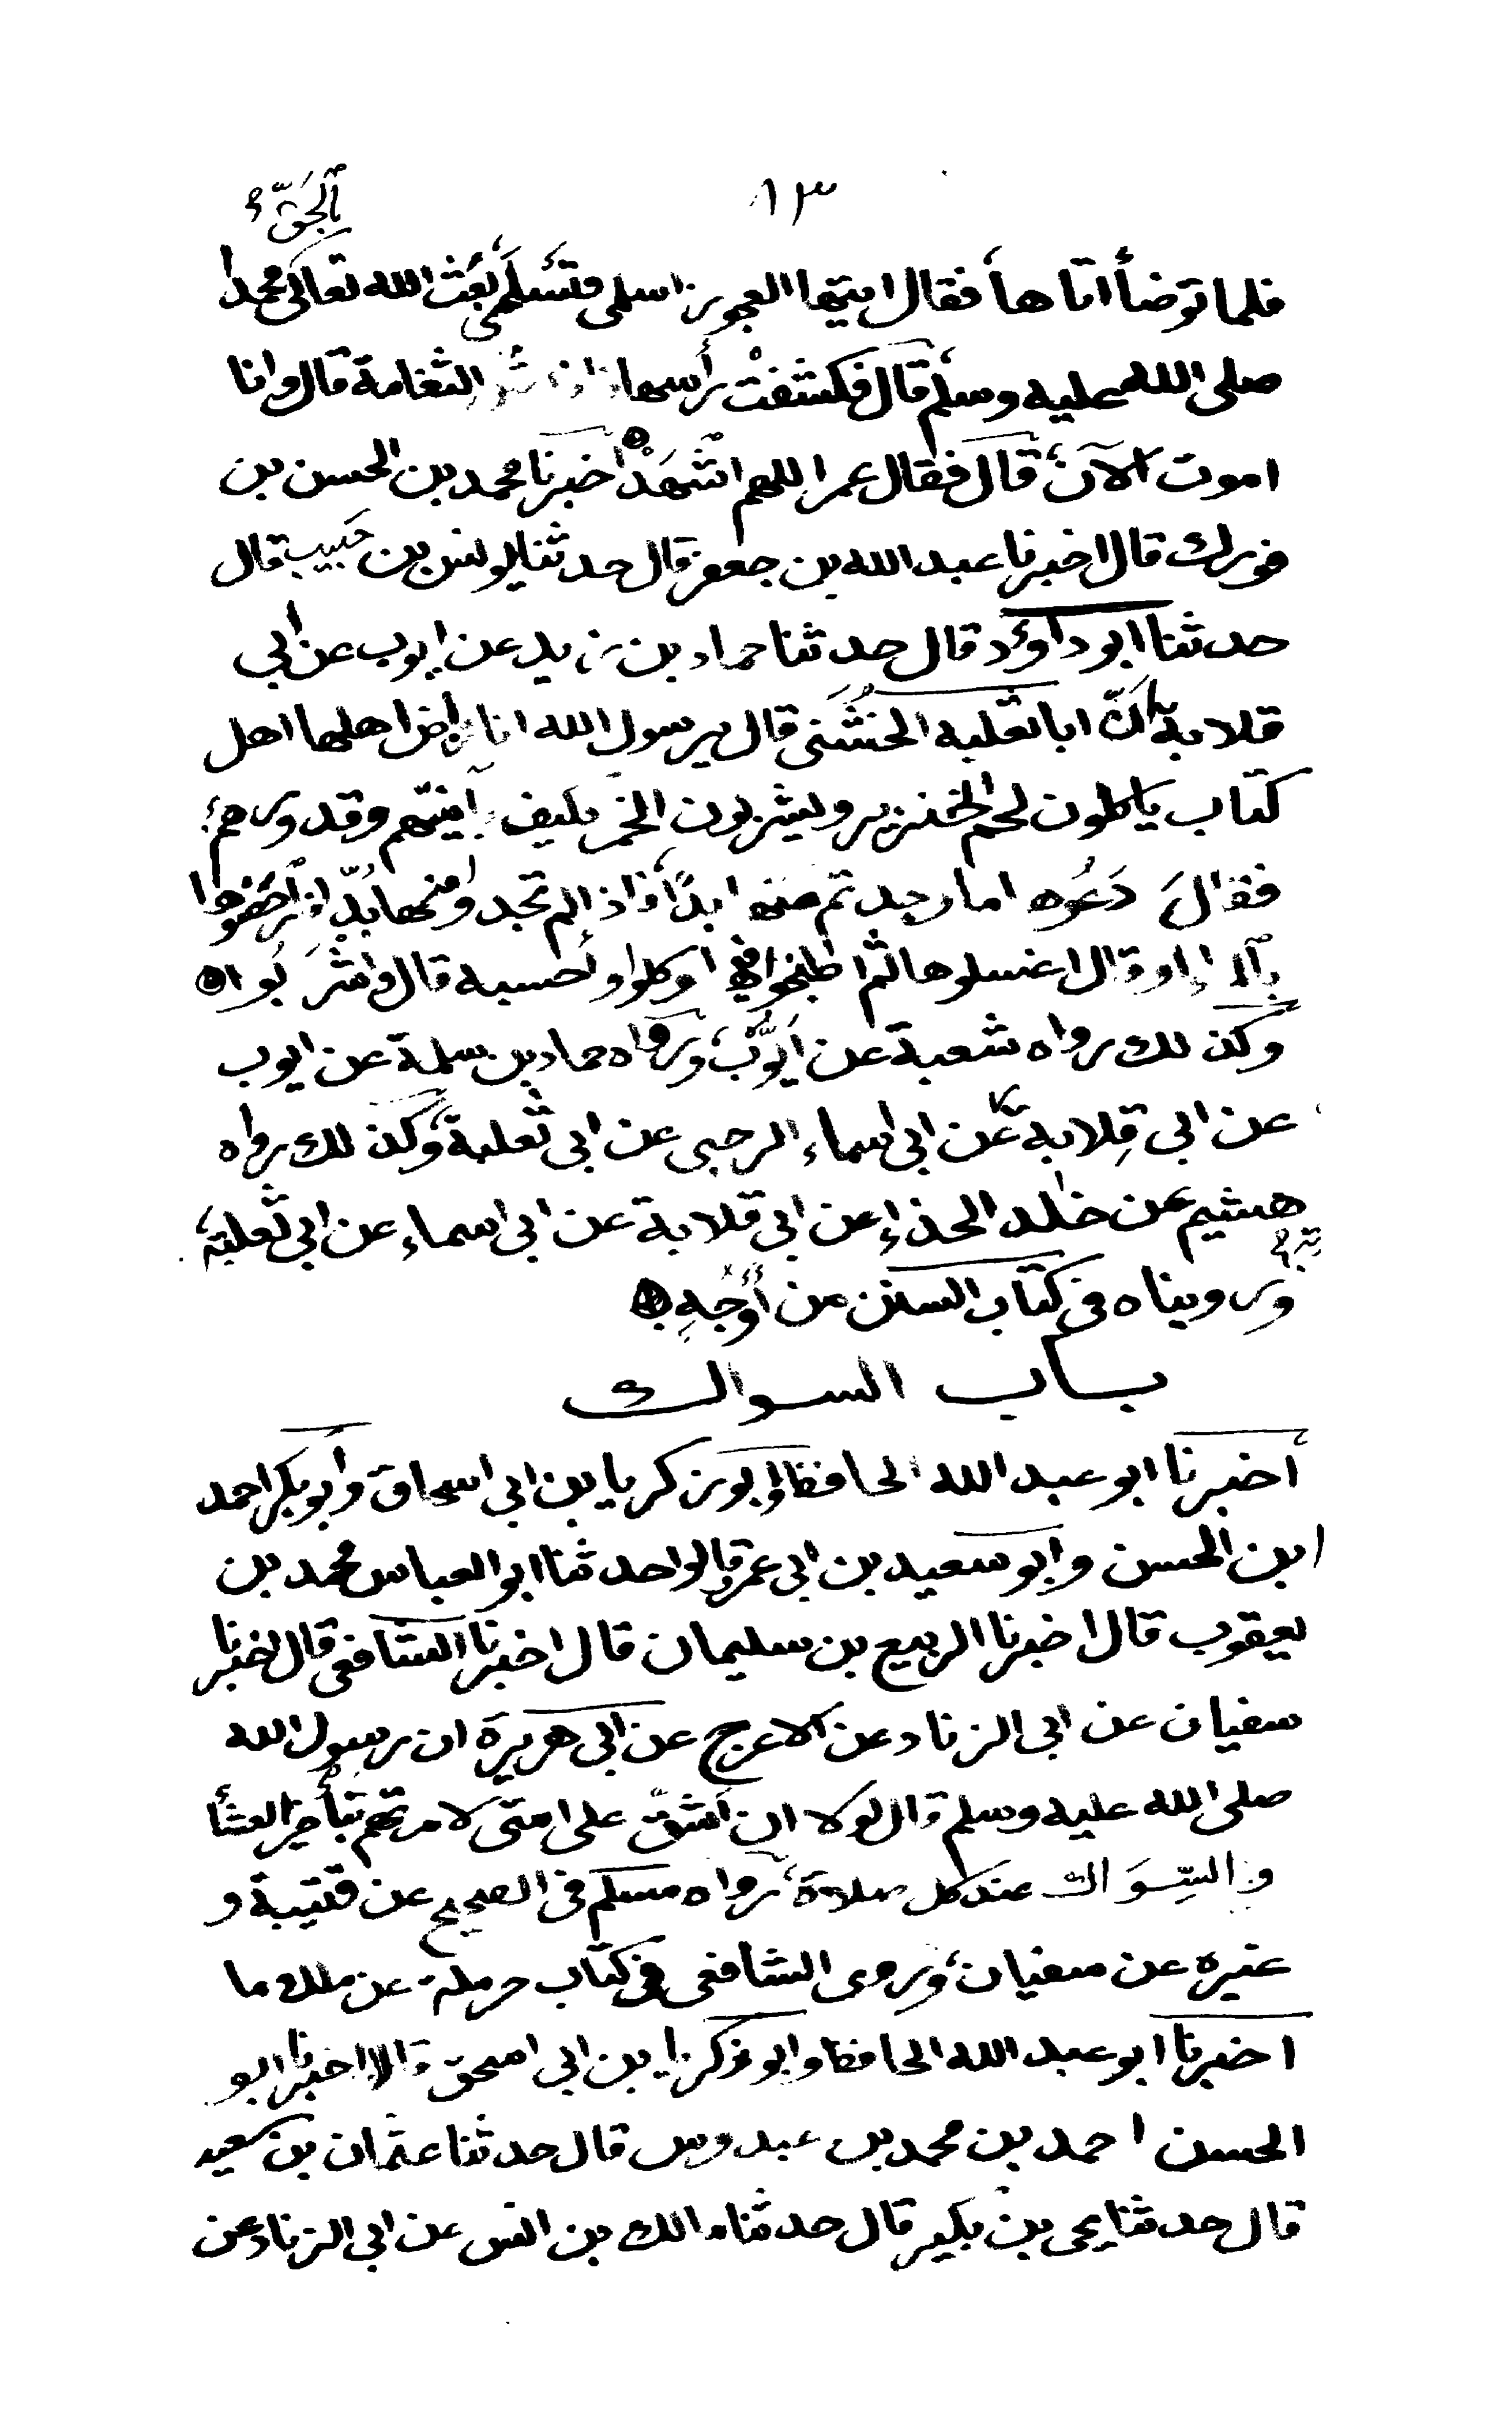 ١٣
بالحق
فلما توضأ اتاها فقال ايتها العجوز اسلمي فتسلمي بعث الله تعالى محمدا
صلى الله عليه وسلم قال فكشفت رأسها فاذا مثل الثغامة قال وانا
اموت الآن قال فقال عمر اللهم اشهد اخبرنا محمد بن الحسن بن
فورك قال اخبرنا عبد الله بن جعفر قال حدثنا يونس بن حبيب قال
حدثنا ابو داود قال حدثنا حماد بن زيد عن ايوب عن ابي
قلابة أن ابا ثعلبه الخشني قال يرسول الله انا بارض اهلها اهل
كتاب ياكلون لحم الخنزير ويشربون الخمر فكيف بآنيتهم وقدورهم
فقال دعوه اما وجدتم منه ابدًا فاذا لم تجدوا منها بدّا فارحضوها
بالماء او قال اغسلوها ثم اطبخوا فيها وكلوا وأحسبه قال واشربوا
وكذلك رواه شعبة عن ايوب ورواه حماد بن سلمة عن ايوب
عن ابي قلابة عن ابي اسماء الرحبي عن ابي ثعلبة وكذلك رواه
هشيم عن خلد الحذاء عن ابي قلابة عن ابي اسماء عن ابي ثعلبة
ورويناه في كتاب السنن من أوجه
باب السواك
أخبرنا ابو عبد الله الحافظ وابو زكريا بن ابي اسحاق وأبو بكر احمد
ابن الحسن وابو سعيد بن ابي عمرو قالوا حدثنا ابو العباس محمد بن
يعقوب قال اخبرنا الربيع بن سليمان قال اخبرنا الشافعي قال اخبرنا
سفيان عن ابي الزناد عن الاعرج عن ابي هريرة ان رسول الله
صلى الله عليه وسلم قال لولا ان اشقّ على امتي لامرتهم بتأخير العشأ
والسِّوَاك عند كل صلاة رواه مسلم في الصحيح عن قتيبة و
غيره عن سفيان وروى الشافعي في كتاب حرملة عن ملك ما
اخبرنا ابو عبد الله الحافظ وابو زكريا بن ابي اسحق قالا اخبرنا ابو
الحسن احمد بن محمد بن عبدوس قال حدثنا عثمان بن سعيد
قال حدثنا يحيى بن بكير قال حدثنا مالك بن انس عن ابي الزناد عن